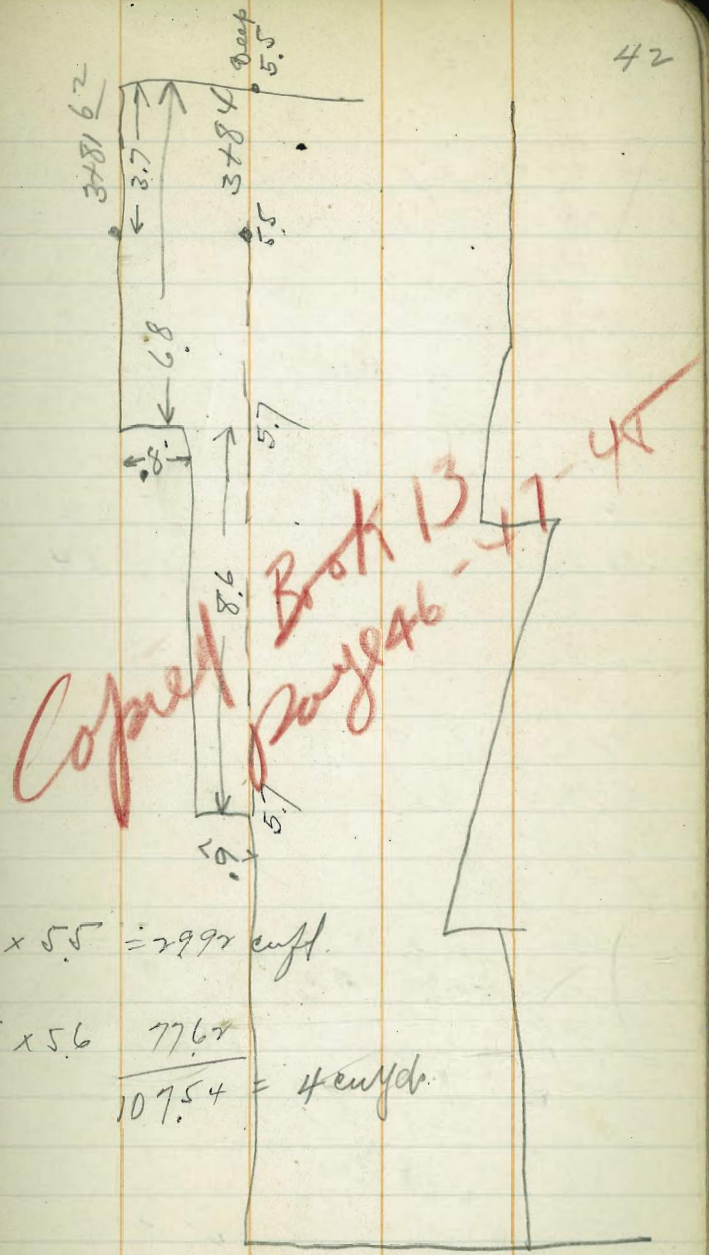 42
3+81 62
3.7
3+84
Deep
5.5
5.5
6.8
.8
5.7
8.6
5.7
.9
Copied Book 13
page 46 - 47 - 48
x 5.5 = 29.92 cu ft.
x 5.6 77.62
107.54 = 4 cu yd.